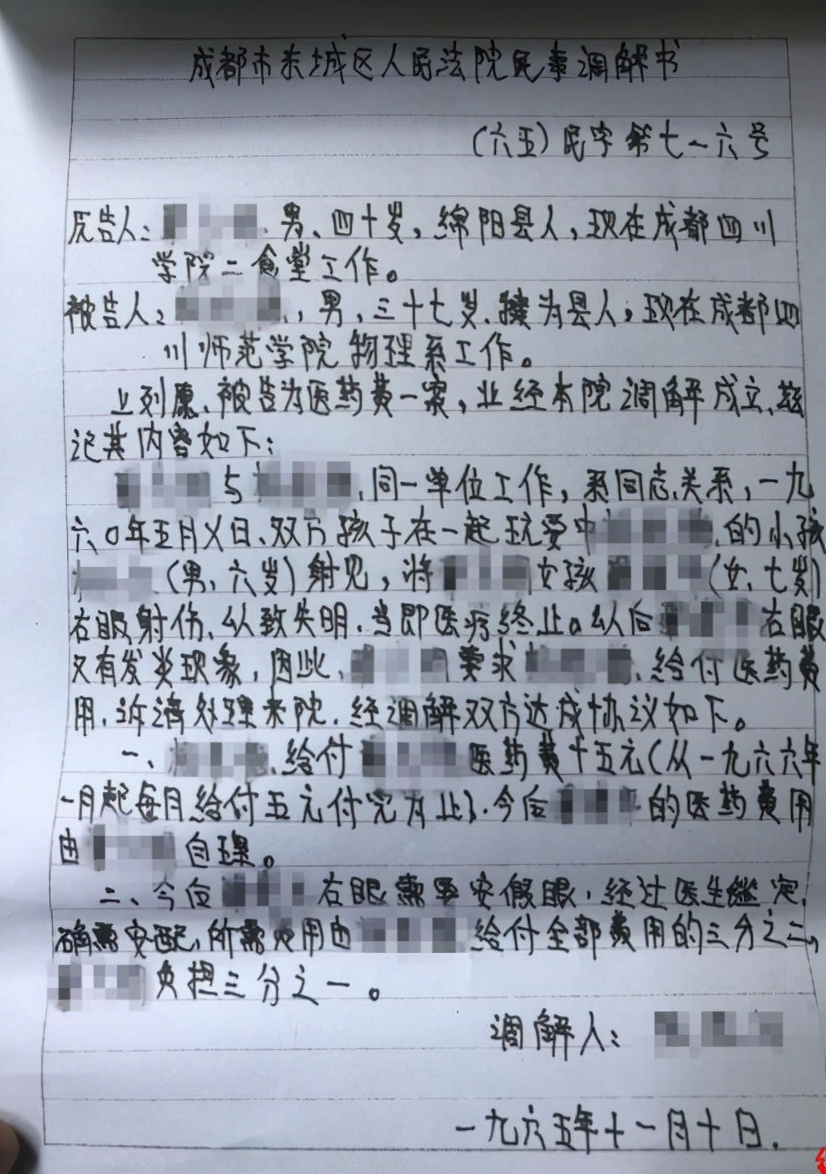 成都市东城区人民法院民事调解书
(六五)民字第七一六号
原告人：男、四十岁，绵阳县人，现在成都四川
学院二食堂工作。
被告人：，男，三十七岁、犍为县人，现在成都四
川师范学院物理系工作。
上列原、被告为医药费一案，业经本院调解成立、兹
记其内容如下：
与，同一单位工作，系同志关系，一九
六〇年五月日、双方孩子在一起玩耍中的小孩
(男，六岁)射见，将女孩(女、七岁)
右眼射伤、以致失明、当即医疗终止。以后右眼
又有发炎现象，因此，要求，给付医药费
用，诉请处理来院，经调解双方达成协议如下。
一、给付医药费十五元(从一九六六年
一月起每月给付五元付完为止)。今后的医药费用
由自理。
二、今后右眼需要安假眼，经过医生鉴定，
确需安配，所需费用由给付全部费用的三分之二，
负担三分之一。
调解人：
一九六五年十一月十日。